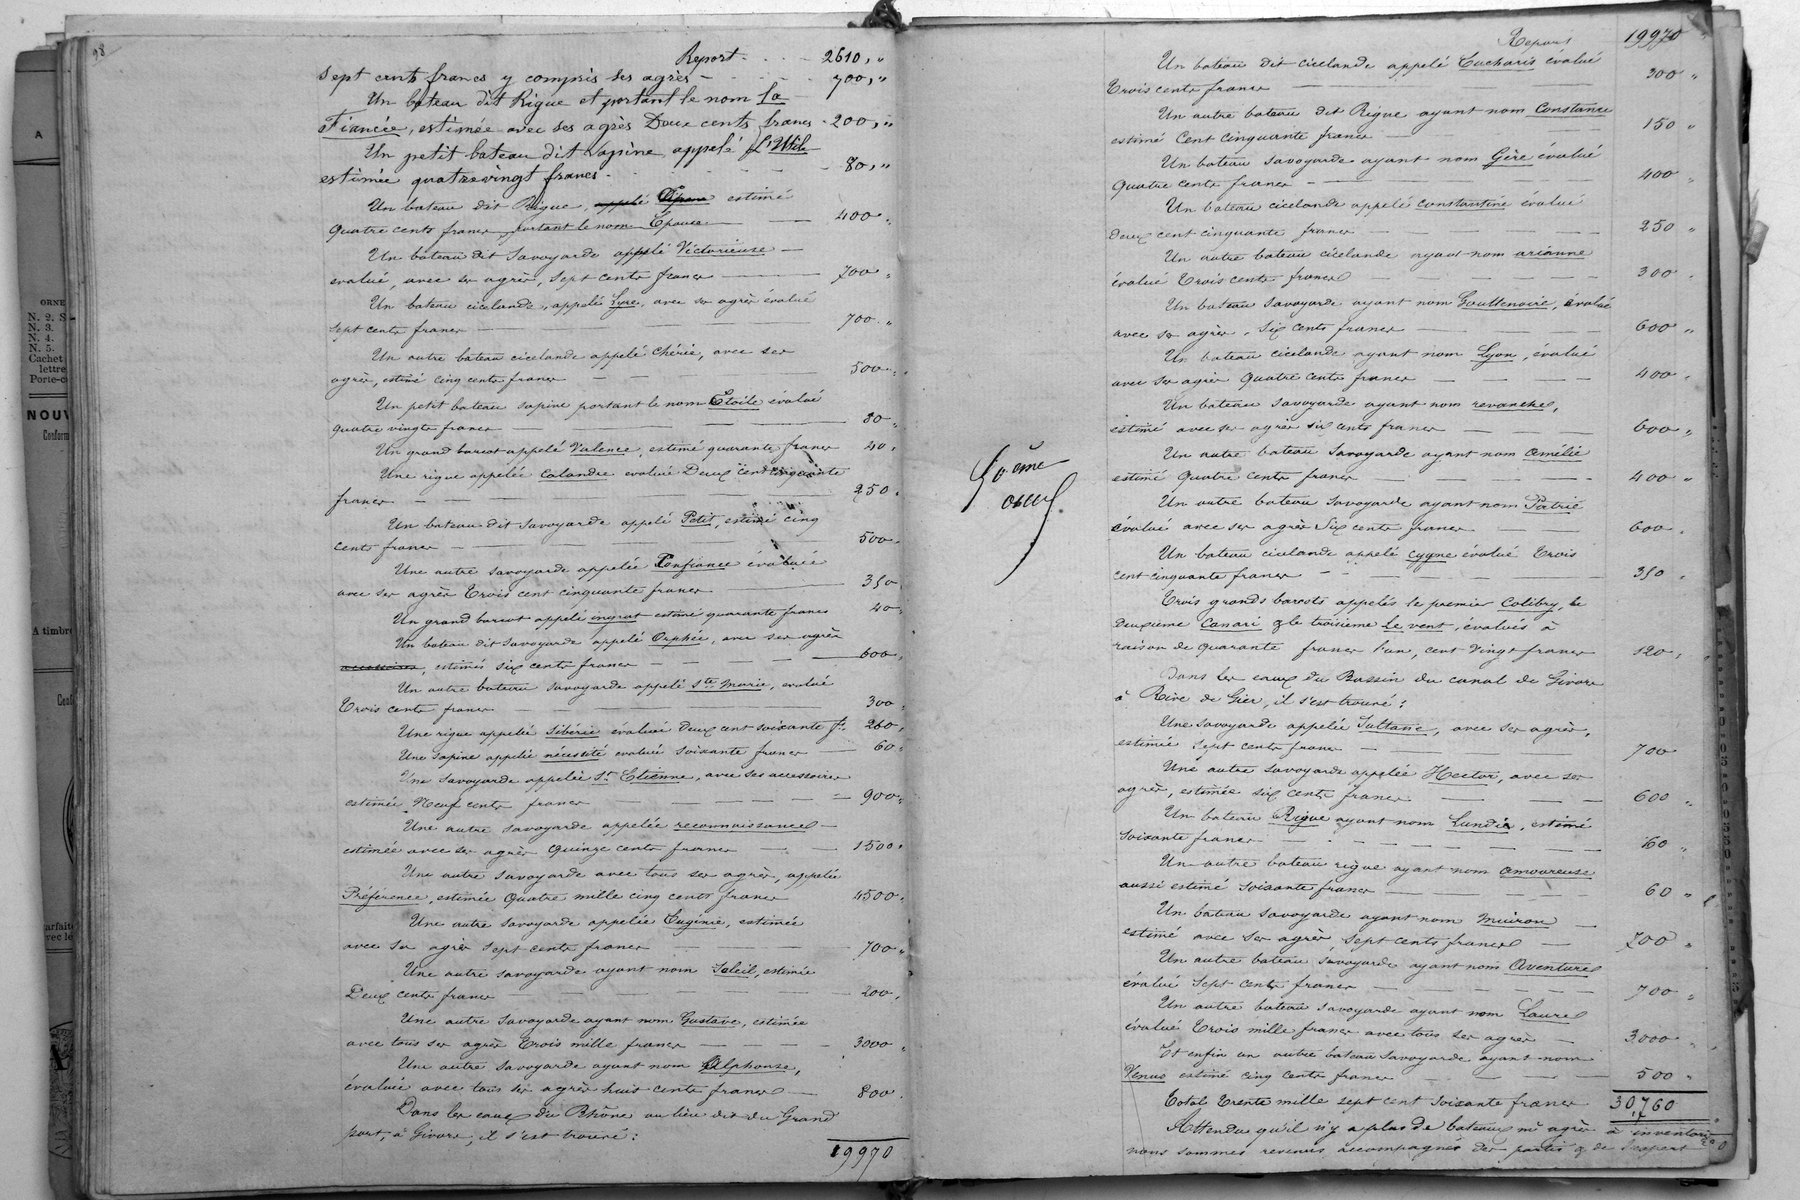 98
Report - 2610, "
Sept cents francs y compris ses agrès - 700, "
Un bateau dit Rigue et portant le nom la
Fiancée, estimée avec ses agrès Deux cents francs - 200, "
Un petit bateau dit sapine, appelé l'Utile
estimée quatrevingt francs - 80, "
Un bateau dit Rigue, appelé Epouse estimé
quatre cents francs, portant le nom Epouse - 400 "
Un bateau dit Savoyarde appelé Victorieuse -
évalué, avec ses agrès, sept cents francs - 700 "
Un bateau cicelande, appelé Lyre, avec ses agrès évalué
sept cents francs - 700 "
Un autre bateau cicelande appelé chérie, avec ses
agrès, estimé cinq cents francs - 500 "
Un petit bateau sapine portant le nom Etoile évalué
quatre vingts francs - 80 "
Un grand barcot appelé Valence, estimé quarante francs 40 "
Une rigue appelée Calandre évalué Deux cent cinquante
francs - 250 "
Un bateau dit Savoyarde appelé Petit, estimé cinq
cents francs - 500 "
Une autre savoyarde appelée Confiance évaluée
avec ses agrès Trois cent cinquante francs - 350
Un grand barcot appelé ingrat estimé quarante francs 40 "
Un bateau dit Savoyarde appelé Orphée, avec ses agrès
accessoires, estimés six cents francs - 600 "
Un autre bateau savoyarde appelé Ste Marie, évalué
Trois cents francs - 300 "
Une rigue appelée Sibérie évaluée deux cent soixante fs. 260 "
Une sapine appelée nécessité évaluée soixante francs - 60 "
Une savoyarde appelée St Etienne, avec ses accessoires
estimée Neuf cents francs - 900 "
Une autre savoyarde appelée reconnaissance -
estimée avec ses agrès Quinze cents francs - 1500 "
Une autre savoyarde avec tous ses agrès, appelée
Préférence, estimée Quatre mille cinq cents francs 4500 "
Une autre savoyarde appelée Eugénie, estimée
avec ses agrès sept cents francs - 700 "
Une autre savoyarde ayant nom Soleil, estimée
Deux cents francs - 200 "
Une autre savoyarde ayant nom Gustave, estimée
avec tous ses agrès Trois mille francs - 3000 "
Une autre savoyarde ayant nom Alphonse,
évaluée avec tous ses agrès huit cents francs - 800
Dans les eaux du Rhône au lieu dit du Grand
port, à Givors, il s'est trouvé :
19970
Report 19970
Un bateau dit cicelande appelé Eucharis évalué
Trois cents francs - 300 "
Un autre bateau dit Rigue ayant nom Constance
estimé Cent cinquante francs - 150 "
Un bateau savoyarde ayant nom Gère évalué
Quatre cents francs - 400 "
Un bateau cicelande appelé constantine évalué
Deux cent cinquante francs - 250 "
Un autre bateau cicelande ayant nom arianne
évalué Trois cents francs - 300 "
Un bateau savoyarde ayant nom Gouttenoire, évalué
avec ses agrès, Six cents francs - 600 "
Un bateau cicelande ayant nom Lyon, évalué
avec ses agrès Quatre cents francs - 400 "
Un bateau savoyarde ayant nom revanche,
estimé avec ses agrès six cents francs - 600 "
Un autre bateau savoyarde ayant nom Amélie
estimé Quatre cents francs - 400 "
Un autre bateau savoyarde ayant nom Patrie
évalué avec ses agrès Six cents francs - 600 "
Un bateau cicelande appelé cygne évalué Trois
cent cinquante francs - 350 "
Trois grands barcots appelés le premier Colibry, le
deuxième Canari & le troisième Le vent, évalués à
raison de quarante francs l'un, cent vingt francs 120 "
Dans les eaux du Bassin du canal de Givors
à Rive de Gier, il s'est trouvé :
Une savoyarde appelée Sultane, avec ses agrès,
estimée sept cents francs - 700
Une autre savoyarde appelée Hector, avec ses
agrès, estimée six cents francs - 600 "
Un bateau Rigue ayant nom Lundi, estimé
Soixante francs - 60 "
Un autre bateau rigue ayant nom amoureuse
aussi estimé soixante francs - 60 "
Un bateau savoyarde ayant nom Muiron -
estimé avec ses agrès, sept cents francs - 700 "
Un autre bateau savoyarde ayant nom Aventure
évalué sept cents francs - 700 "
Un autre bateau savoyarde ayant nom Laure
évalué Trois mille francs avec tous ses agrès - 3000 "
Et enfin un autre bateau savoyarde, ayant nom
Venus estimé cinq cents francs - 500 "
Total Trente mille sept cent soixante francs 30,760
Attendu qu'il n'y a plus de bateaux ni agrès à inventorier
nous sommes revenus accompagnés des parties & de l'expert
ORNE
N. 2. S
N. 3.
N. 4.
N. 5.
Cachet
lettre
Porte-c
NOUV
Conform
A timbre
Conf
arfait
vec le